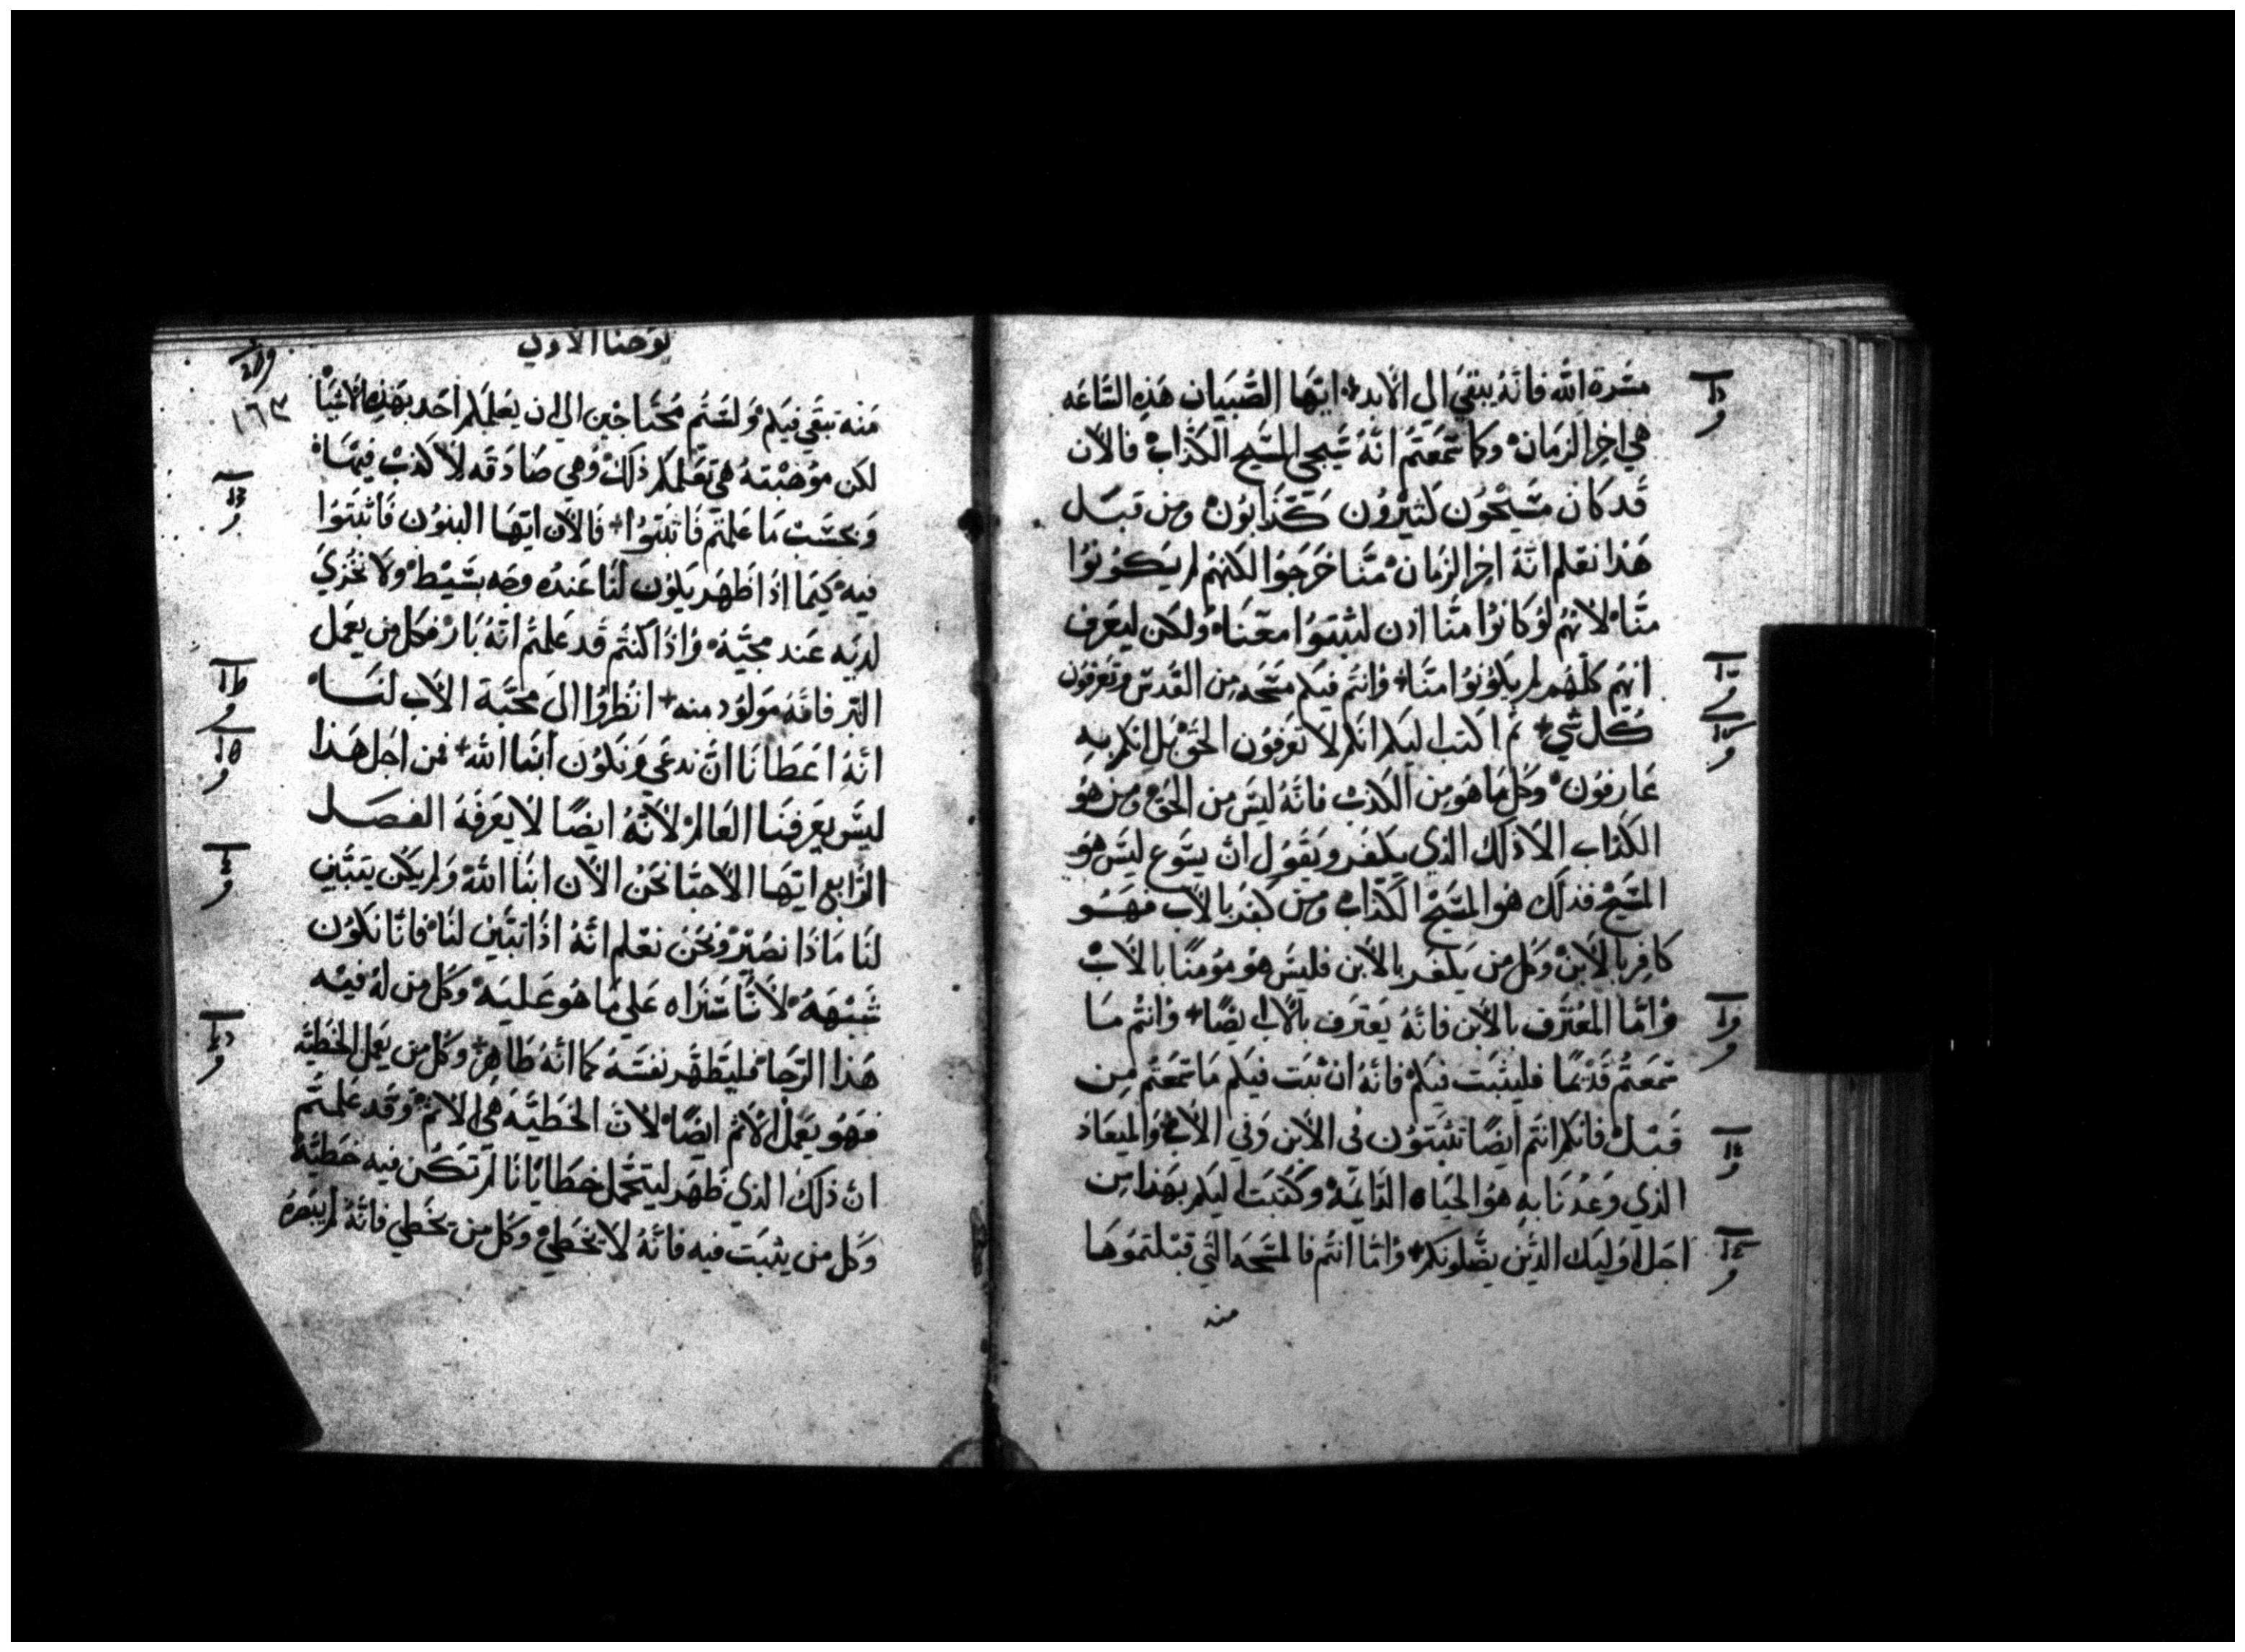 مسرة الله فانَّهُ يبقي الي الابد ايها الصبيان هذه الساعه
هي اخر الزمان وكما سمعتم انهُ سيجي المسيح الكذاب فالان
قد كان مسيحون كثيرون كذابون ومن قبل
هذا نعلم انهُ اخر الزمان منا خرجوا لكنهم لم يكونوا
منا لانهم لو كانوا منا اذن لثبتوا معنا ولكن ليعرف
انهم كلهم لم يكونوا منا وانتم فيكم مسحه من القدس وتعرفون
كل شي لم اكتب اليكم انكم لا تعرفون الحق بل انكم به
عارفون وكل ما هو من الكذب فانه ليس من الحق ومن هو
الكذاب الا ذلك الذي يكفر ويقول ان يسوع ليس هو
المسيح فذلك هو المسيح الكذاب ومن كفر بالاب فهو
كافر بالابن وكل من يكفر بالابن فليس هو مومنًا بالاب
وامّا المعترف بالابن فانهُ يعترف بالاب ايضًا وانتم ما
سمعتم قديمًا فليثبت فيكم فانه ان ثبت فيكم ما سمعتم من
قبل فانكم انتم ايضًا تثبتون في الابن وفي الاب والميعاد
الذي وعدنا به هو الحياه الدايمه وكتبت اليكم بهذا من
اجل اوليك الذين يضلونكم وامّا انتم فالمسحه التي قبلتموها
منه
يوحنا الاولي
١٦٣
منه تبقي فيكم ولستم محتاجين الي ان يعلمكم احد بهذه الاشيا
لكن موهبته هي تعلمكم ذلك وهي صادقه لا كذب فيها
وبحسب ما علمتم فاثبتوا فالان ايها البنون فاثبتوا
فيه كيما اذا ظهر يكون لنا عنده وجه بسيط ولا نخزي
لديه عند مجيه واذا كنتم قد علمتم انهُ بار فكل من يعمل
البر فانه مولود منه انظروا الي محبة الاب لنا
انه اعطانا ان ندعي ونكون ابنا الله فمن اجل هذا
ليس يعرفنا العالم لانهُ ايضًا لا يعرفه الفصل
الرابع ايها الاحبا نحن الان ابنا الله ولم يكن يتبين
لنا ماذا نصير ونحن نعلم انهُ اذا تبين لنا فانا نكون
شبهه لاننا سنراه علي ما هو عليه وكل من له فيه
هذا الرجا فليطهر نفسه كما انهُ طاهر وكل من يعمل الخطيه
فهو يعمل الاثم ايضًا لان الخطيه هي الاثم وقد علمتم
ان ذلك الذي ظهر ليتحمل خطايانا لم تكن فيه خطيّهُ
وكل من يثبت فيه فانهُ لا يخطي وكل من يخطي فانهُ لم يبصره